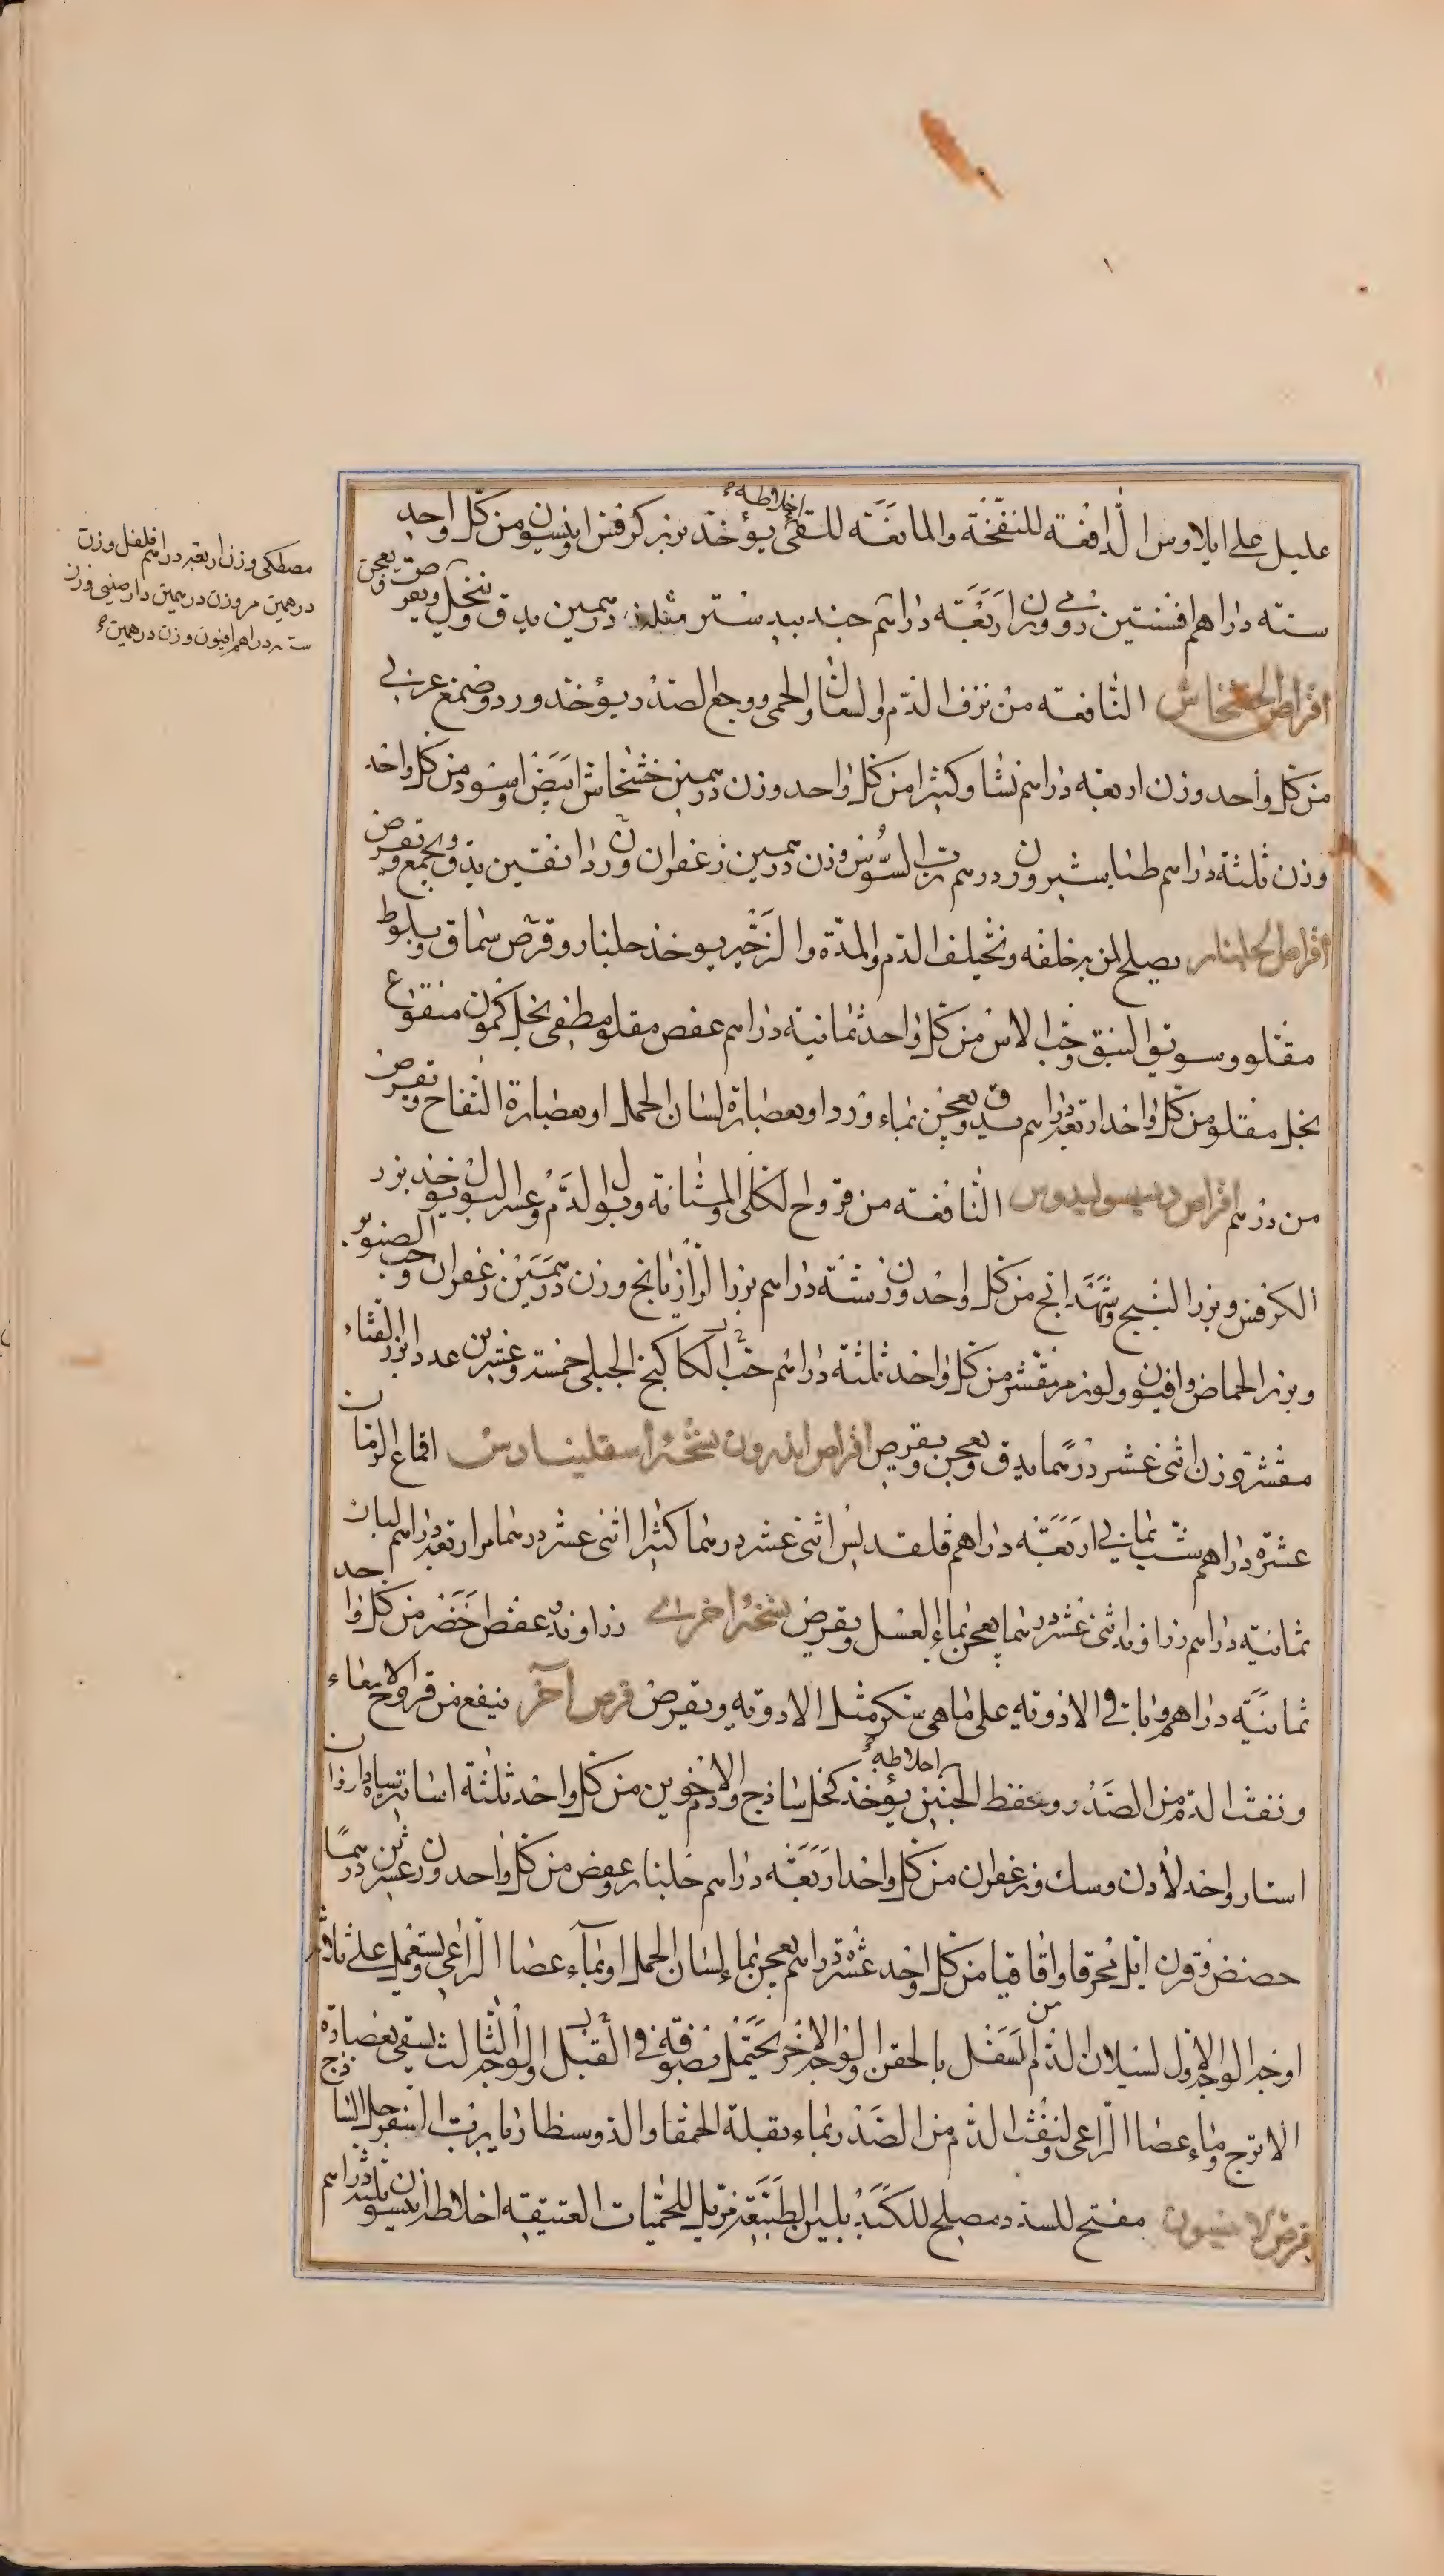 عليل على ايلاوس الدافعة للنفخة والمانعة للقئ اخلاطه يؤخذ بزر كرفس انيسون من كل واحد
ستة دراهم افسنتين رومي وزن اربعة دراهم جندبيدستر مثله درهمين يدق وينخل ويعجن ويقرص
اقراص الخشخاش النافعة من نزف الدم والسعال والحمى ووجع الصدر يؤخذ ورد وصمغ عربي
من كل واحد وزن اربعة دراهم نشا وكثيرا من كل واحد وزن درهمين خشخاش ابيض واسود من كل واحد
وزن ثلثة دراهم طباشير وزن درهم رب السوس وزن درهمين زعفران وزن دانقين يدق ويجمع ويقرص
اقراص الجلنار يصلح لمن به خلفه ويختلف الدم والمدة والزحير يوخذ جلنار وقرض سماق وبلوط
مقلو وسويق النبق وحب الاس من كل واحد ثمانية دراهم عفص مقلو مطفى بخل كمون منقوع
بخل مقلو من كل واحد اربعة دراهم يدق ويعجن بماء ورد او بعصارة لسان الحمل او بعصارة التفاح ويقرص
من درهم اقراص النافعة من قروح الكلى والمثانة وبول الدم وعسر البول يوخذ بزر
الكرفس وبزر البنج وشهدانج من كل واحد وزن ستة دراهم بزر الرازيانج وزن درهمين زعفران وحب الصنوبر
وبزر الحماض وافيون ولوز مر مقشر من كل واحد ثلثة دراهم حب الكاكنج الجبلي خمسة وعشرين عددا بزر القثاء
مقشر وزن اثنى عشر درهما يدق ويعجن ويقرص اقراص اندرون نسخة اسقلينادس اقماع الرمان
عشرة دراهم شب يماني اربعة دراهم قلقديس اثنى عشر درهما كثيرا اثنى عشر درهما مر اربعة دراهم لبان
ثمانية دراهم زراوند اثنى عشر درهما يعجن بماء العسل ويقرص نسخة اخرى زراوند عفص اخضر من كل واحد
ثمانية دراهم وباقي الادوية على ما هي سكر مثل الادوية ويقرص قرص آخر ينفع من قروح الامعاء
ونفث الدم من الصدر وحفظ الجنين اخلاطه يؤخذ كحل ساذج ودم الاخوين من كل واحد ثلثة اساتير سياه داروان
استار واحد لادن ومسك وزعفران من كل واحد اربعة دراهم جلنار وعفص من كل واحد وزن عشرين درهما
حضض وقرن ايل محرق واقاقيا من كل واحد عشرة دراهم يعجن بماء لسان الحمل او بماء عصا الراعي ويستعمل على ثلاثة
اوجه الوجه الاول لسيلان الدم من اسفل بالحقن والوجه الاخر يحتمل بصوفة في القبل والوجه الثالث يسقى بعصارة
الاترج وماء عصا الراعي ولنفث الدم من الصدر بماء بقلة الحمقا والذوسنطاريا برب السفرجل الساذج
قرص الانيسون مفتح للسدد مصلح للكبد يلين الطبيعة مزيل للحميات العتيقة اخلاطه انيسون ثلثة دراهم
مصطكى وزن اربعة دراهم فلفل وزن
درهمين مر وزن درهمين دارصيني وزن
ستة دراهم افيون وزن درهمين